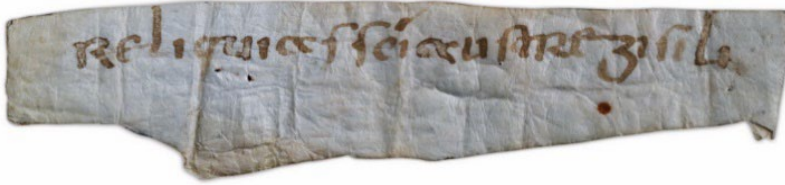 reliquias sci austregisili